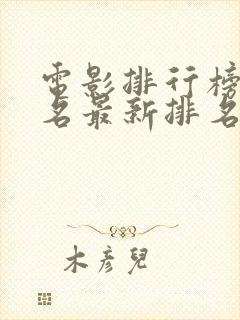 電影排行榜
名最新排名
木彥兒